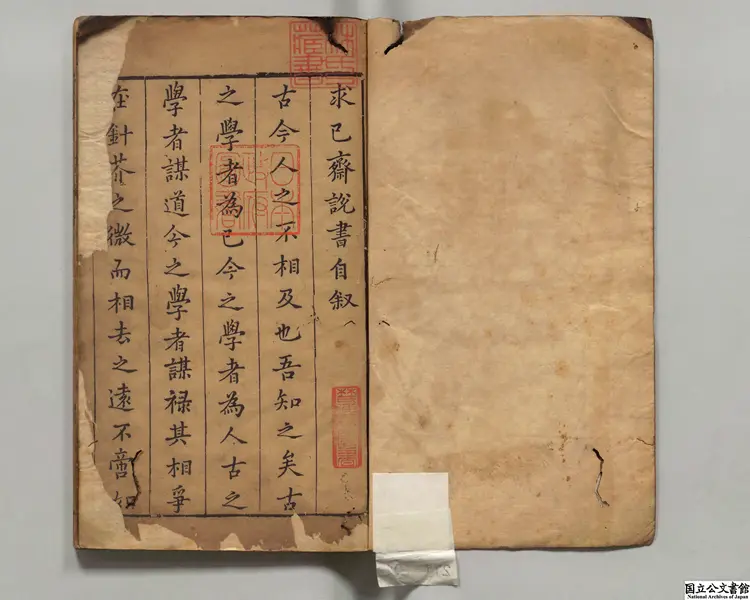 求已齋說書自叙
古今人之不相及也吾知之矣古
之學者為已今之學者為人古之
學者謀道今之學者謀祿其相爭
在針芥之微而相去之遠不啻如
林氏藏書
日本政府圖書
国立公文書館
National Archives of Japan